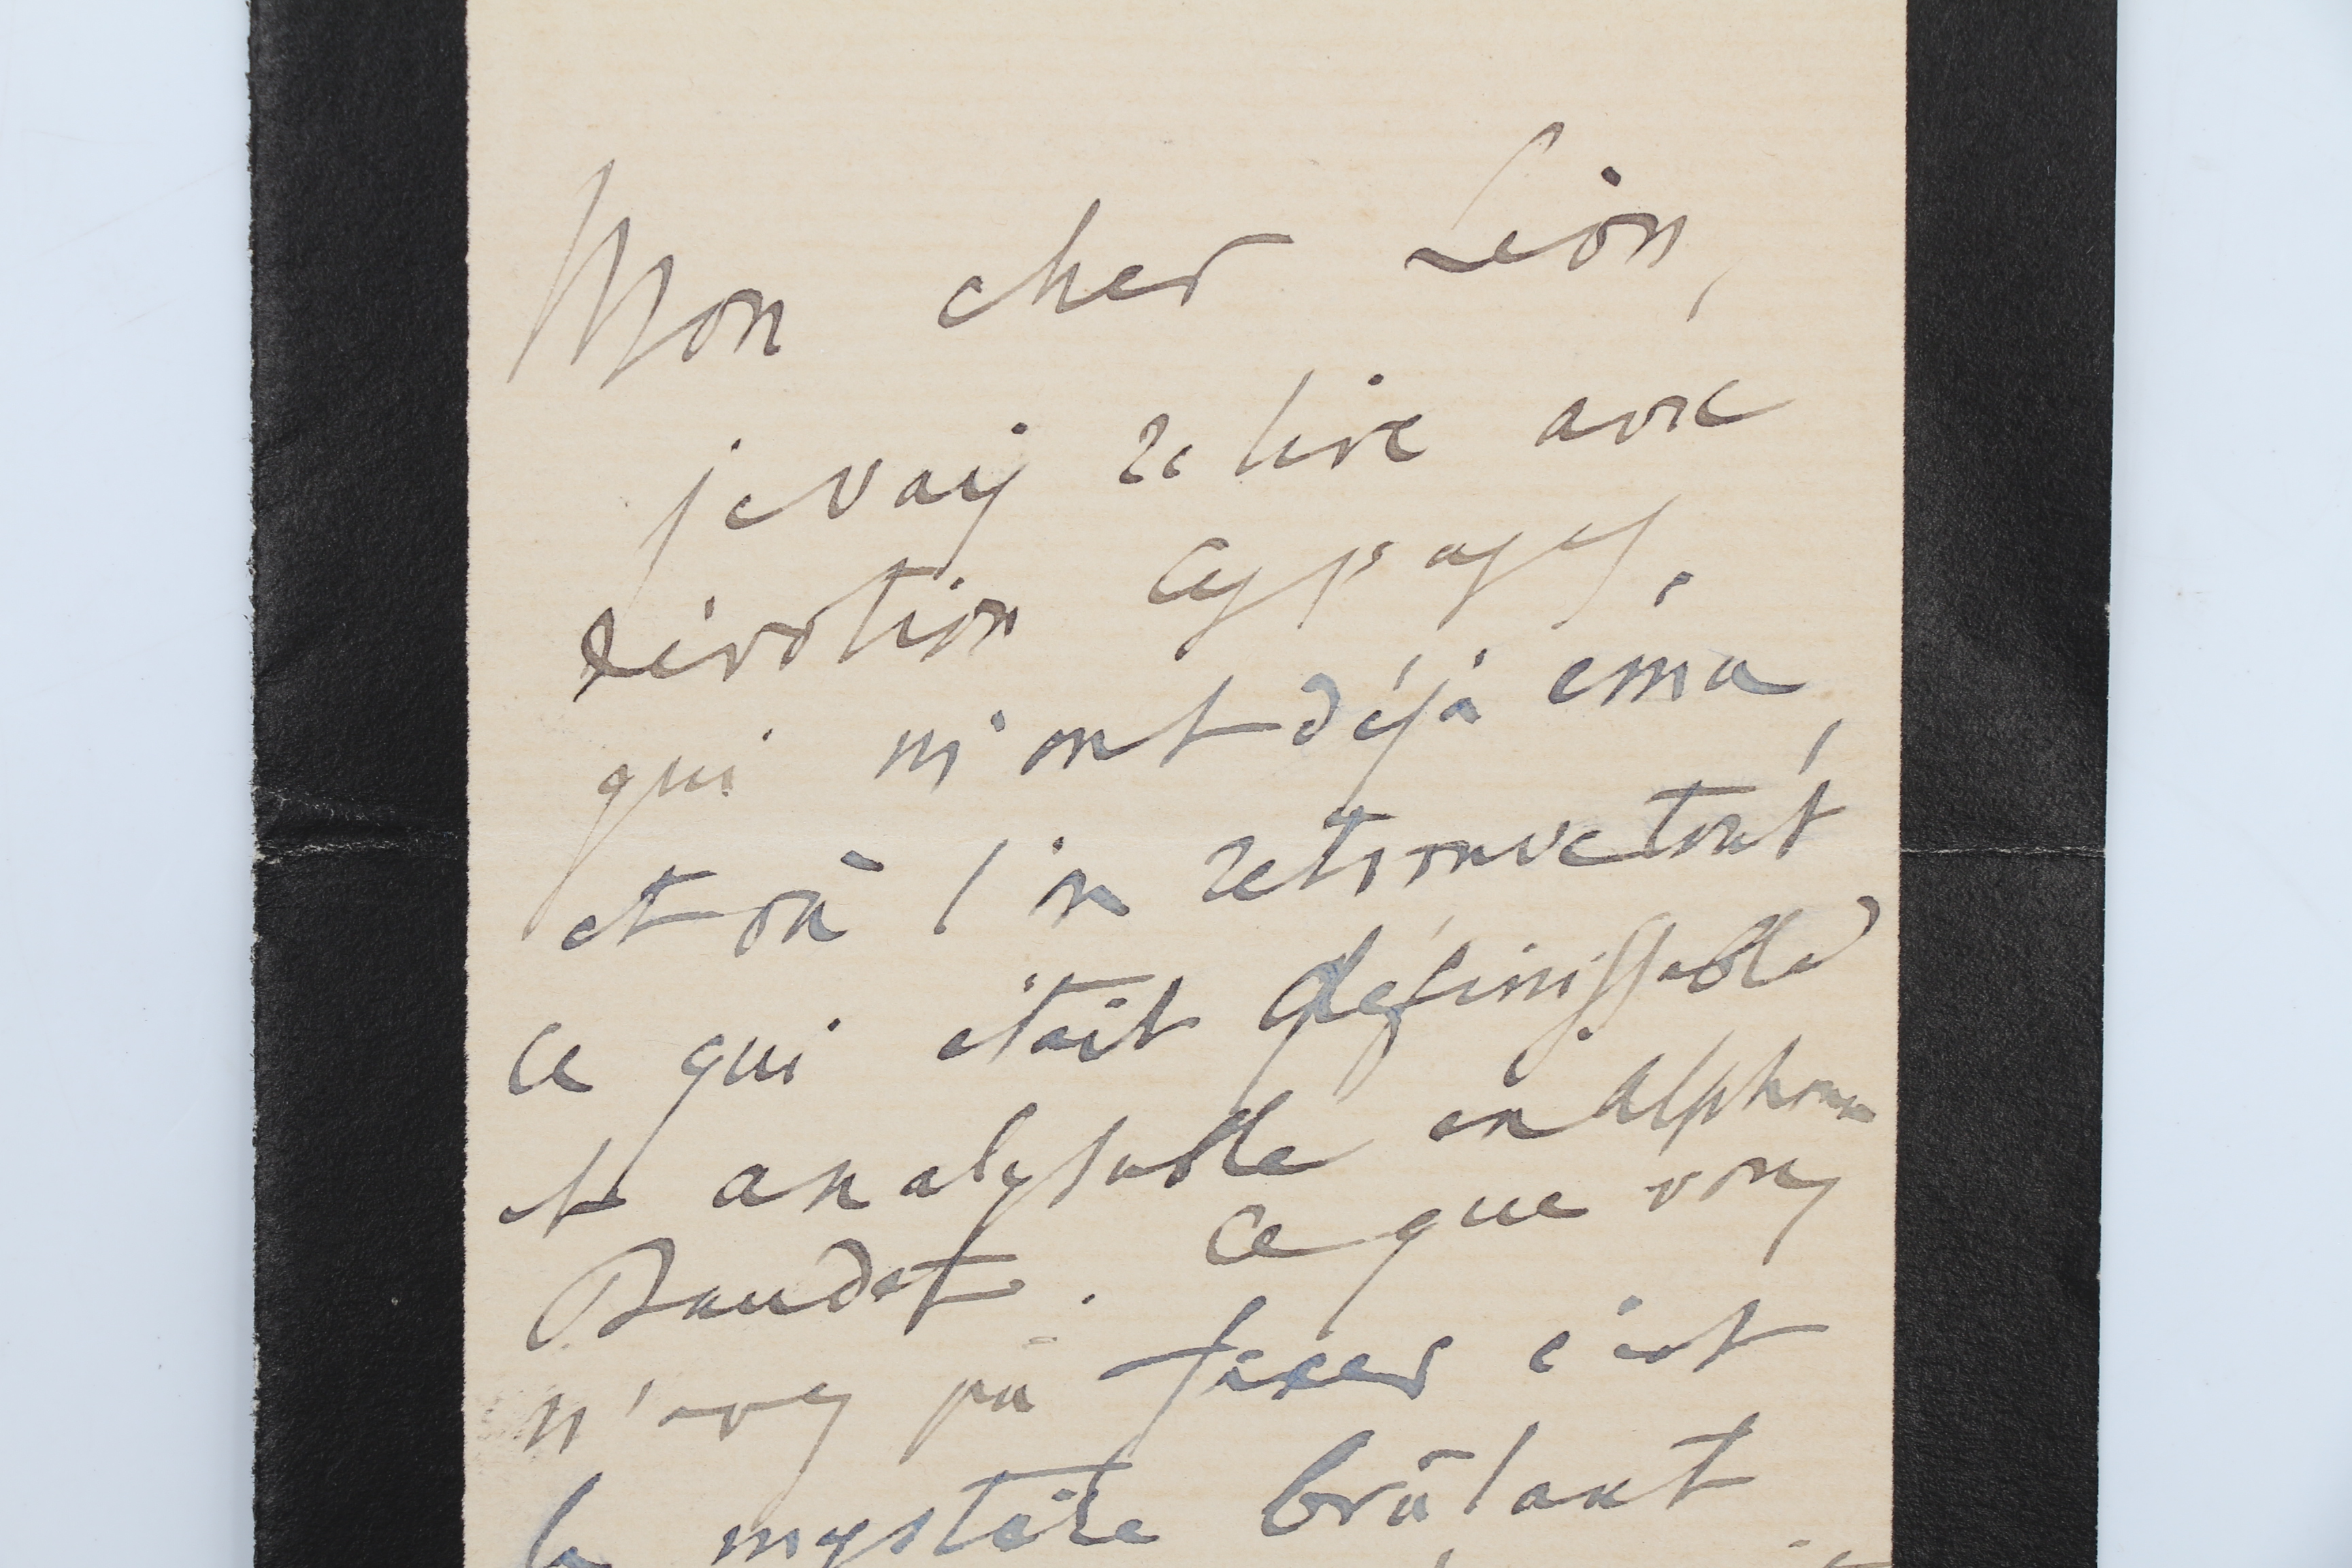 Mon cher Léon,
je vais relire avec
dévotion ces pages,
qui m'ont déjà ému,
et où l'on retrouve tout
ce qui était définissable
et analysable en Alphonse
Daudet. Ce que vous
n'avez pû fixer c'est
le mystère brûlant